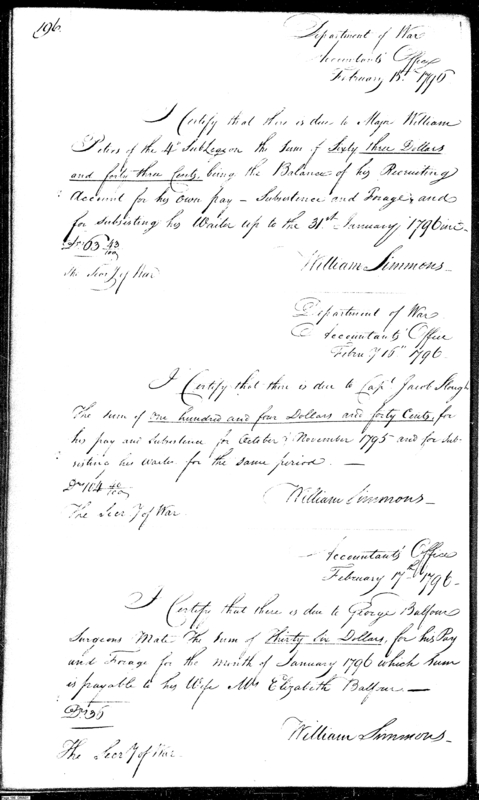 196.
Department of War
Accountants Office
February 15th 1796
I Certify that there is due to Major William
Peters of the 4th SubLegion the sum of Sixty three Dollars
and forty three Cents, being the Balance of his Recruiting
Account for his own pay – Subsistence and Forage, and
for subsisting his Waiter up to the 31st January, 1796 incl.
Drs 63 43/100
The Secry of War
William Simmons
Department of War
Accountants Office
Febru'y 15th 1796.
I Certify that there is due to Capt Jacob Slough
The sum of one hundred and four Dollars and forty Cents, for
his pay and Subsistence for October & November 1795 and for Sub-
sisting his waiter for the same period. —
Drs 104 40/100
The Secry of War
William Simmons
Accountants Office
February 17th 1796
I Certify that there is due to George Balfour
Surgeons Mate The sum of Thirty Six Dollars, for his Pay
and Forage for the month of January 1796 which sum
is payable to his Wife Mrs Elizabeth Balfour —
Drs 36
William Simmons
The Secry of War.